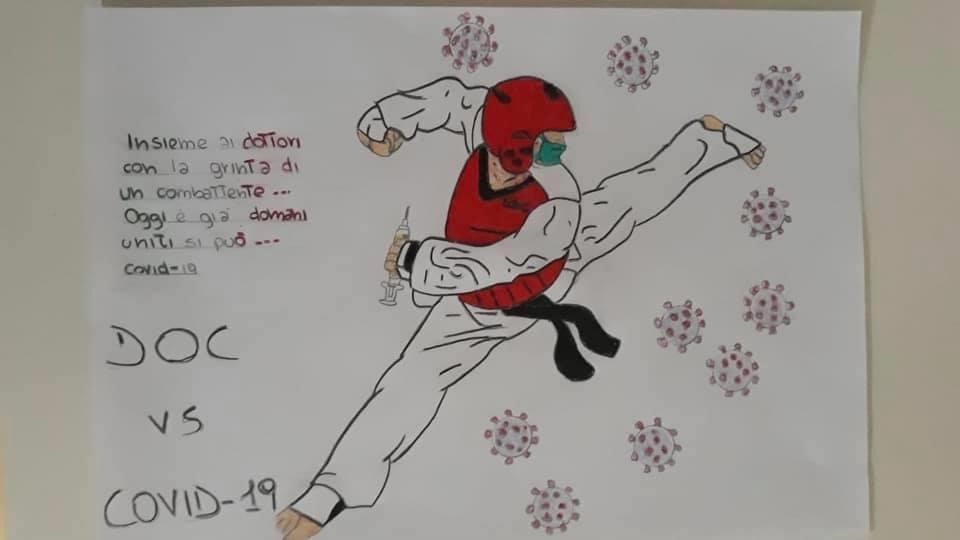 Insieme ai dottori
con la grinta di
un combattente ...
Oggi è già domani
uniti si può ...
covid-19
DOC
VS
COVID-19